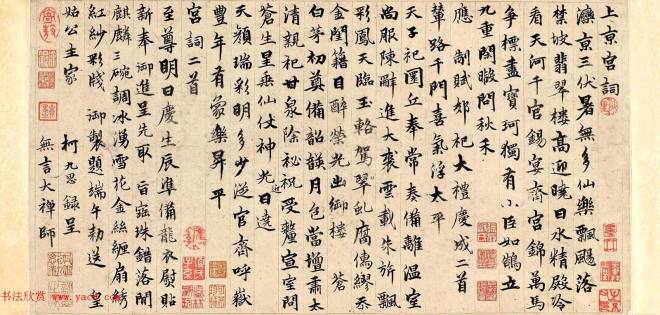 上京宮詞
灤京三伏暑無多仙樂飄飄落
禁坡翡翠樓高迎曉日水精殿冷
看天河千官錫宴齊宮錦萬馬
爭標盡寶珂獨有小臣如鶴立
九重閒暇問秋禾
應制賦郊祀大禮慶成二首
輦路千門喜氣浮太平
天子祀圜丘奉常奏備離溫室
尚服陳辭進大裘雲載朱旂飄
彩鳳天臨玉輅駕翠虬腐儒繆忝
金閨籍目醉榮光出御樓 蒼
白茅初奠備韶韺月色當壇肅太
清親祀甘泉除祕祝受釐宣室問
蒼生星垂仙仗神光近日達
天顏瑞彩明多少從官齊呼嶽
豐年有象樂昇平
宮詞二首
至尊明日慶生辰準備龍衣熨貼
新奉御進呈先取旨 珠錯落閒
麒麟三碗調冰湧雪花金絲纏扇綉
紅紗彩牋御製題端午勅送皇
姑公主家
柯九思錄呈
無言大禪師
书法欣赏
www.yac8.com